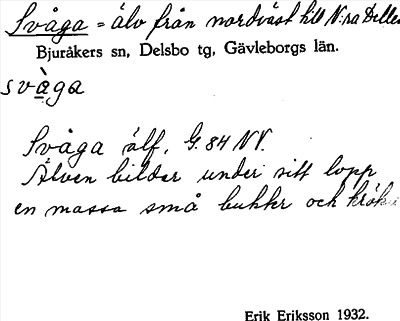 Svåga = älv från nordväst till N:ra Dellen
Bjuråkers sn, Delsbo tg, Gävleborgs län.
svàga
Svåga älf. G. 84 NV.
Älven bildar under sitt lopp
en massa små bukter och
Erik Eriksson 1932.